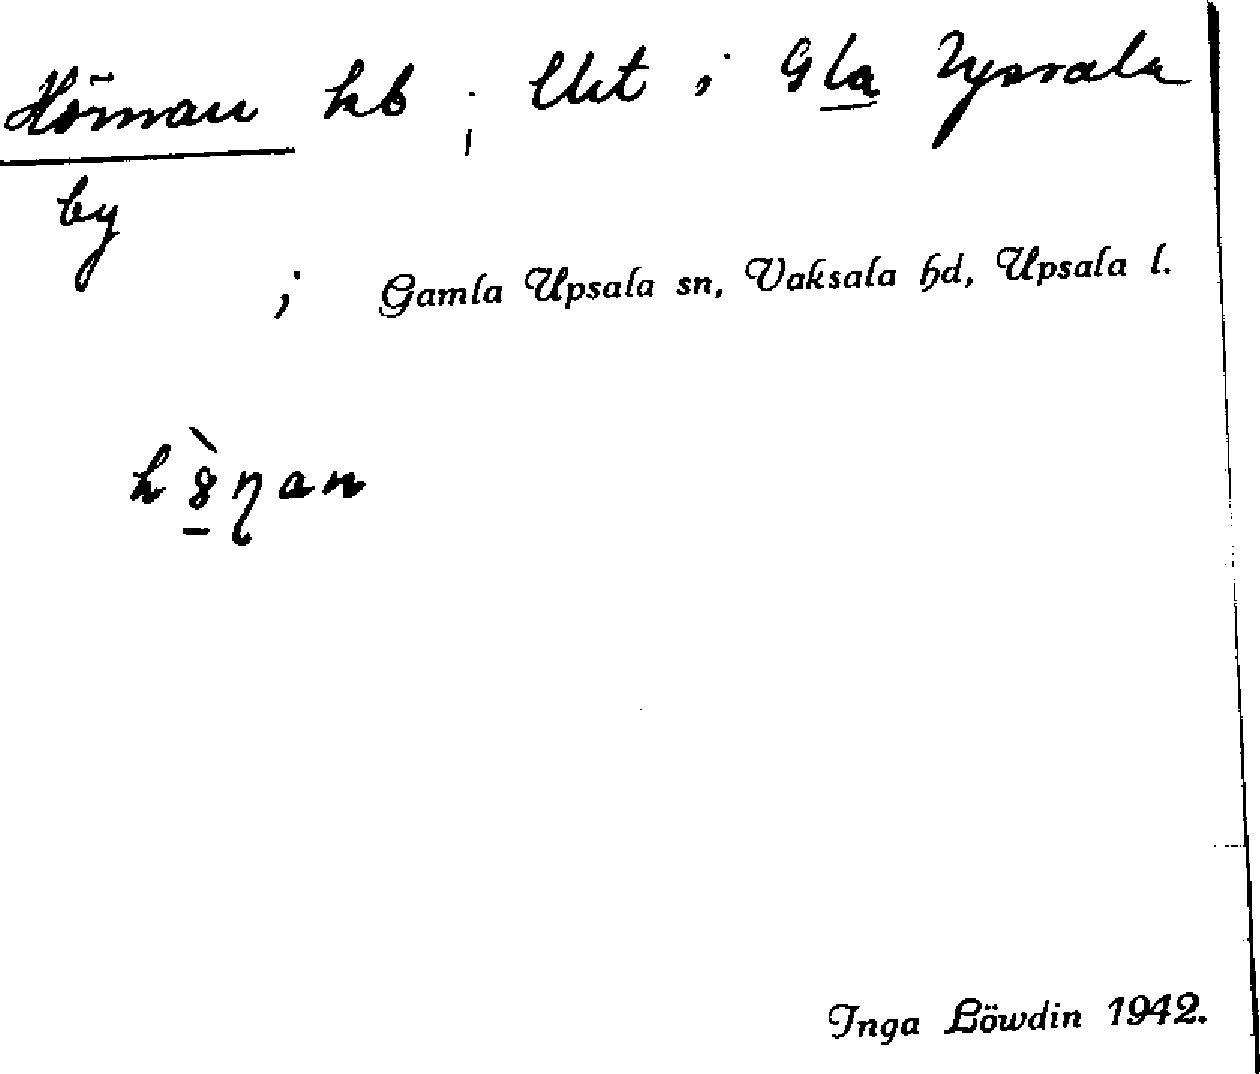 Hörnan hb ; Utt ; Gla Upsala
by
; Gamla Upsala sn, Vaksala hd, Upsala l.
Inga Löwdin 1942.